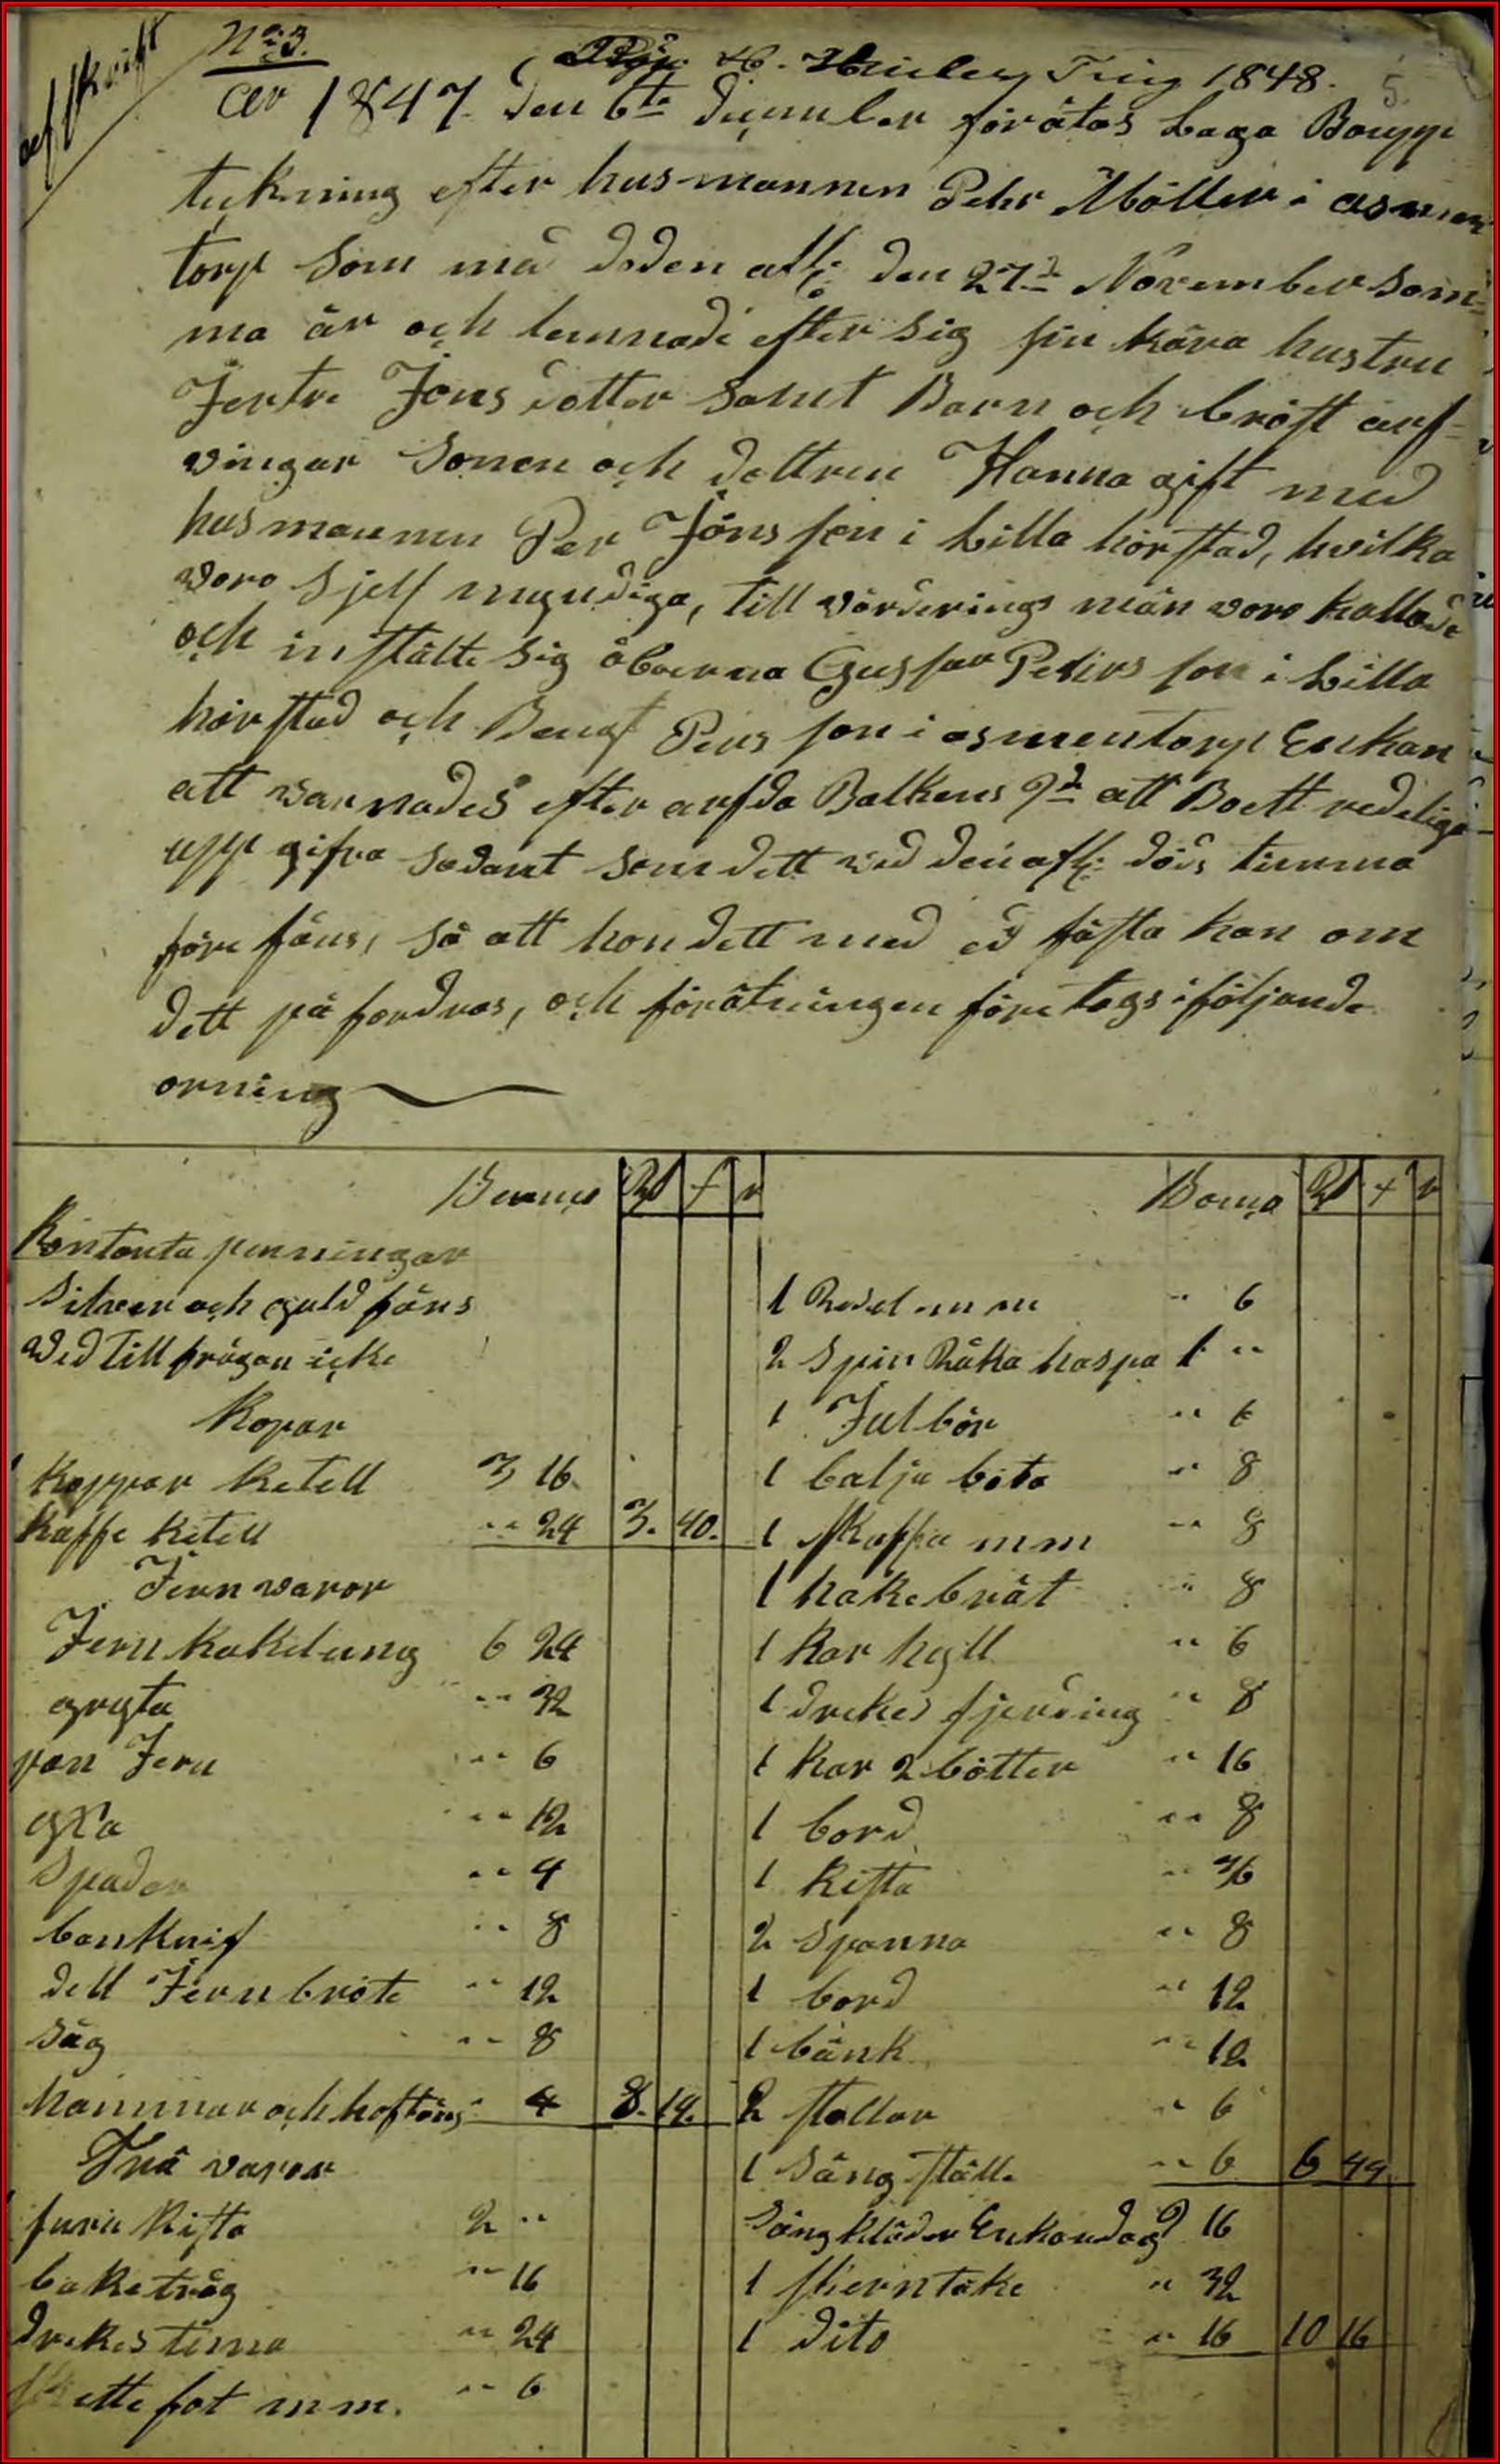 afskrift
No 3.
H. Ting 1848. 5.
År 1847 den 6te December förätas Laga Boupp
tekning efter husmannen Pehr Möller i asmun
torp som med döden afl: den 27d November som=
ma år och lemnade efter sig sin kära hustru
Jertre Jönsdotter samt Barn och bröst arf=
vingar sonen och dottren Hanna gift med
husmannen Per Jönsson i Lilla horstad, hvilka
voro sjelf myndiga, till värderings män voro kallade
och instälte sig åboerna Gussav Peters son i Lilla
horstad och Bengt Pers son i asmentorp Enkan
att varnades efter arfda Balkens 9d att Boett redeliga
upp gifva sådant som dett ved den afl: döds timma
före fans, så att hon dett med ed fästa kan om
dett på fordras, och förätningen före togs i följande
orning
Banco Rd f r
Kontanta penningar
Silver och guld fans
ved till frågan icke
Kopar
1 Koppar Ketell 3 16
Kaffe Ketell " 24 3. 40.
Jern varor
Jern Kakelung 6 24
gryta " 32
pan Jern " 6
yxa " 12
Spadar " 4
bankknif " 8
dell Jern bröte " 12
Såg " 8
hammar och hoftång " 4 8. 14.
Trä varor
1 furu Kista 2 "
baketråg " 16
drekes tina " 24
ette fat m m. " 6
Banco Rd f r
1 m m " 6
2 Spin Råka haspa 1 "
1 Julbör " 6
1 balja böta " 8
1 skappa mm " 8
1 hakebrät " 8
1 Kar hyll " 6
1 drekes fjerding " 8
1 Kar 2 bötter " 16
1 bord " 8
1 Kista " 36
2 Spanna " 8
1 bord " 12
1 bänk " 12
2 stollar " 6
1 Säng ställe " 6 6 44
Säng kläder Enkandag 9 16
1 stierntäke " 32
1 dito " 16 10 16